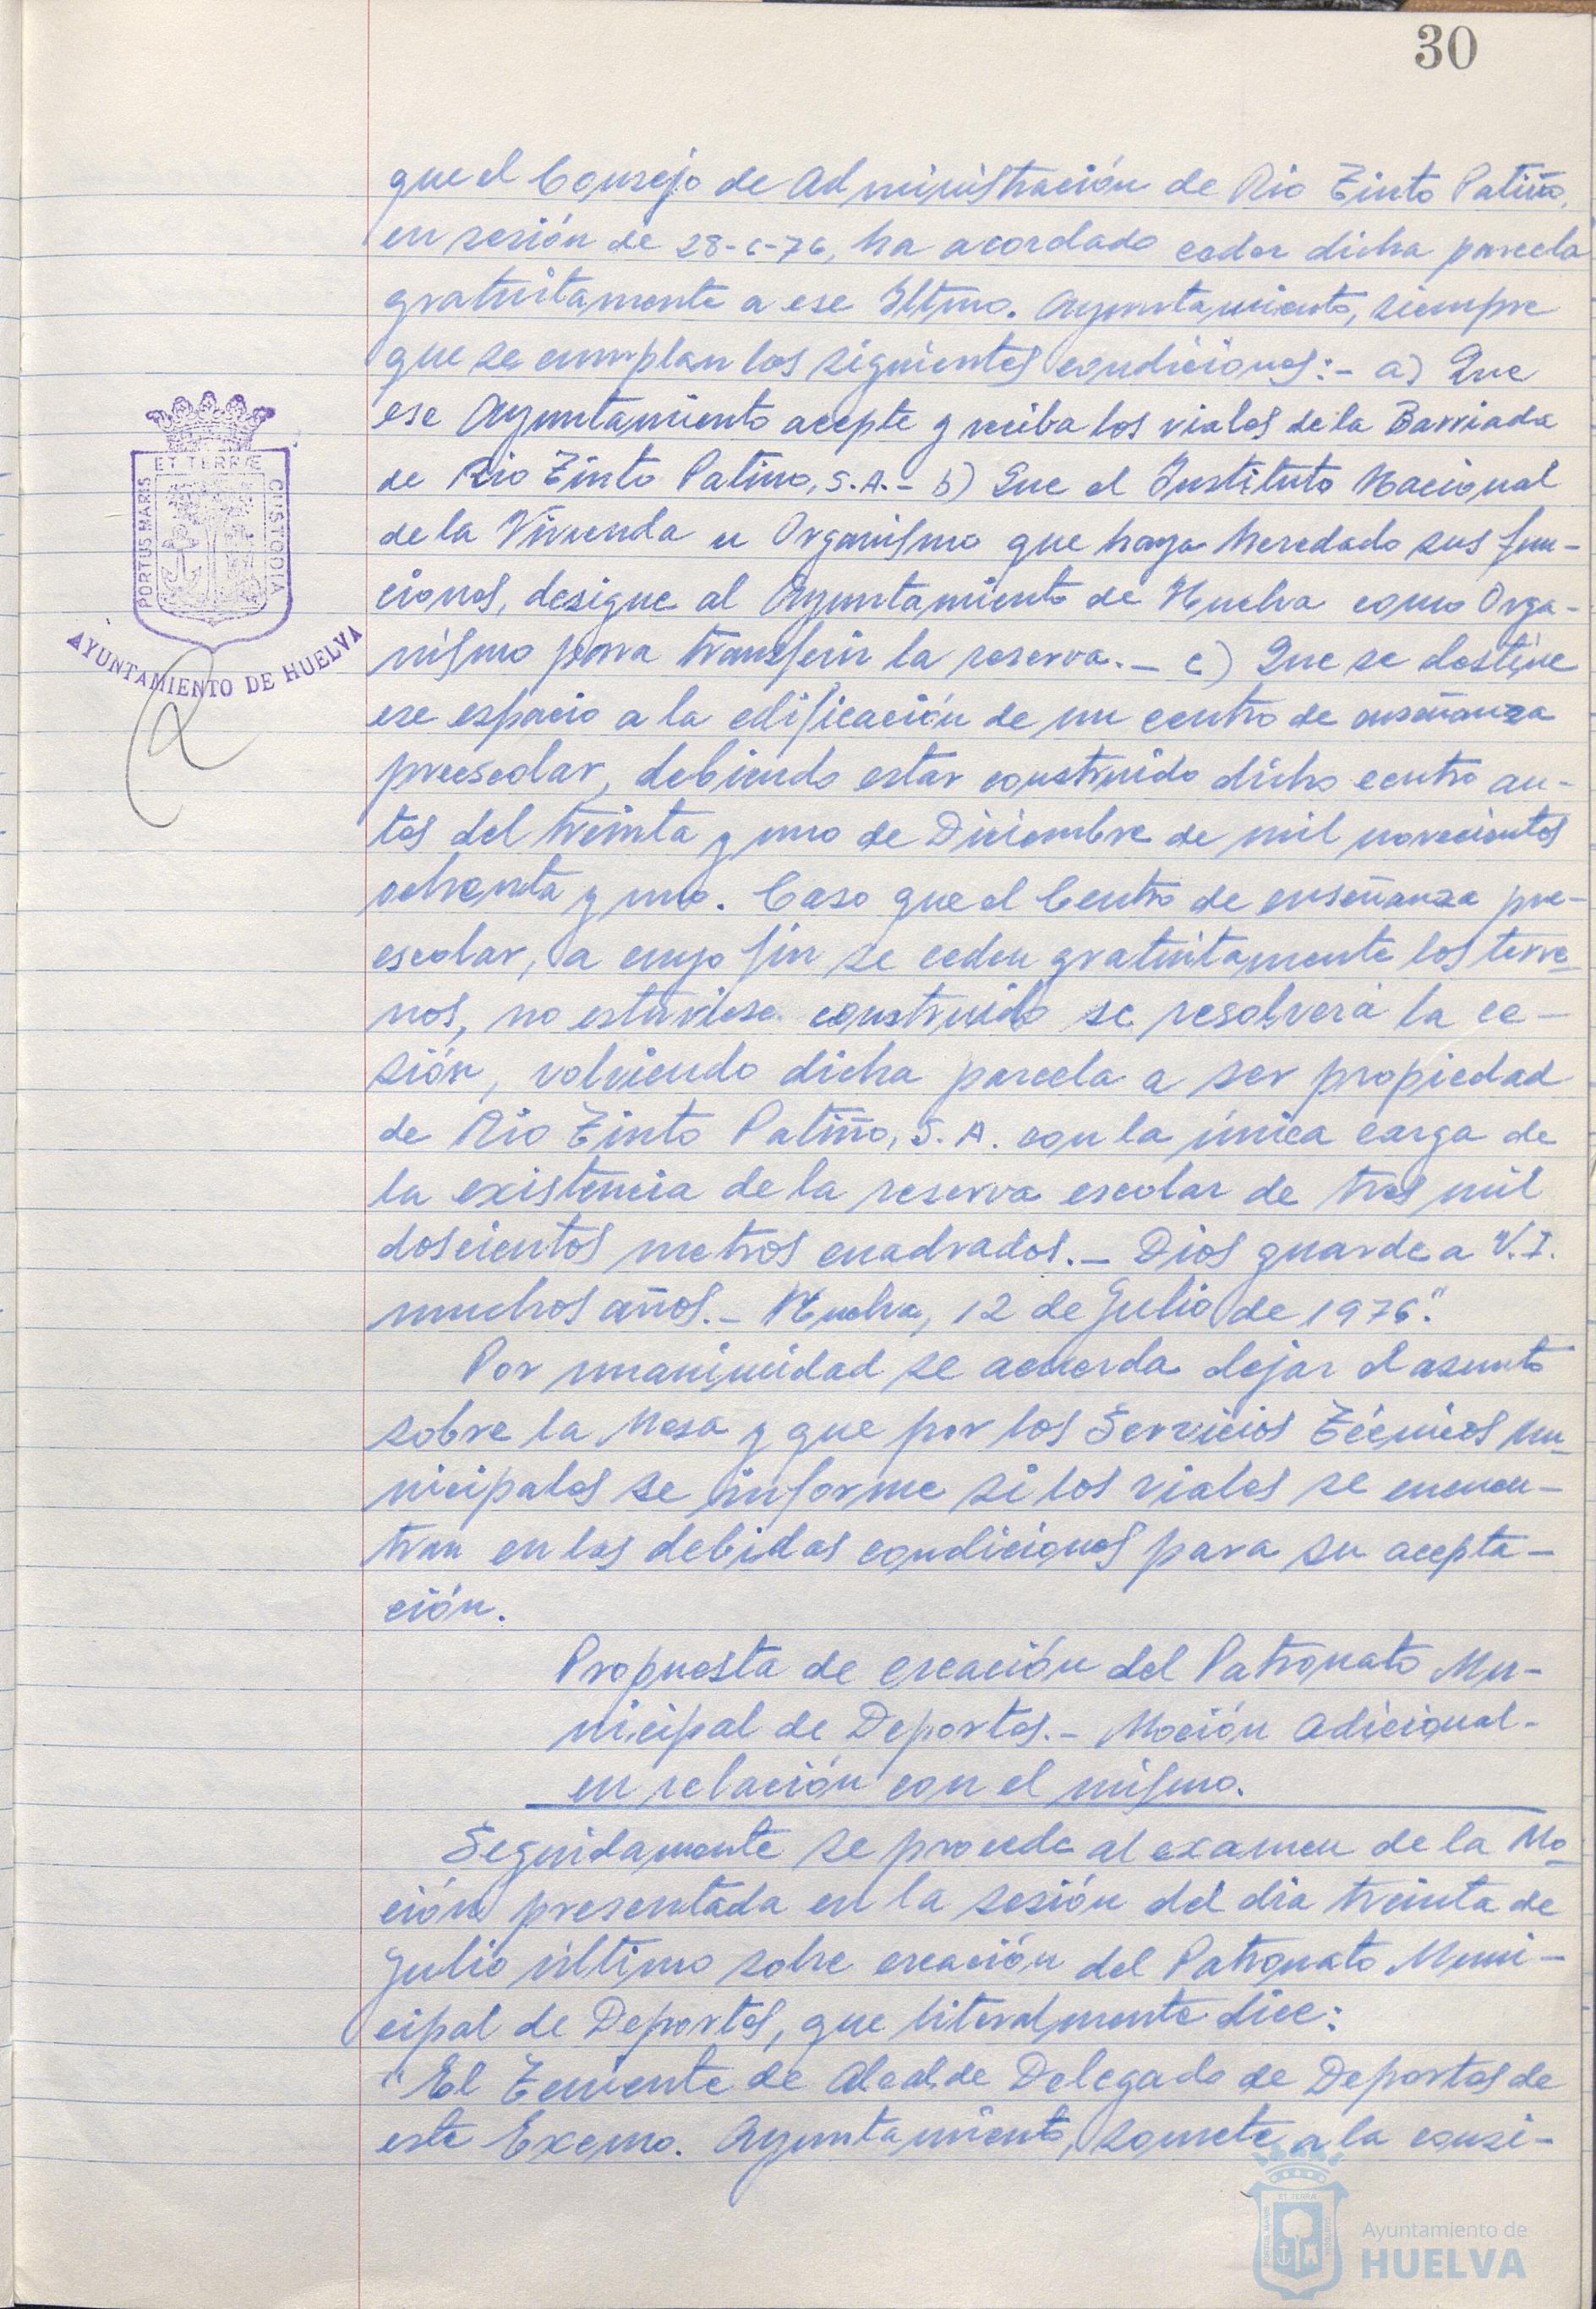 30
que el Consejo de Administración de Rio Tinto Patiño,
en sesión de 28-6-76, ha acordado ceder dicha parcela
gratuitamente a ese Iltmo. Ayuntamiento, siempre
que se cumplan las siguientes condiciones:- a) Que
ese Ayuntamiento acepte y reciba los viales de la Barriada
de Rio Tinto Patino, S.A.- b) Que el Instituto Nacional
de la Vivienda u Organismo que haya heredado sus fun-
ciones, designe al Ayuntamiento de Huelva como Orga-
nismo para transferir la reserva.- c) Que se destine
ese espacio a la edificación de un centro de enseñanza
preescolar, debiendo estar construido dicho centro an-
tes del treinta y uno de Diciembre de mil novecientos
ochenta y uno. Caso que el Centro de enseñanza pre-
escolar, a cuyo fin se ceden gratuitamente los terre-
nos, no estuviese construido se resolverá la ce-
sión, volviendo dicha parcela a ser propiedad
de Rio Tinto Patiño, S.A. con la única carga de
la existencia de la reserva escolar de tres mil
doscientos metros cuadrados.- Dios guarde a V.I.
muchos años.- Huelva, 12 de Julio de 1976."
Por unanimidad se acuerda dejar el asunto
sobre la Mesa y que por los Servicios Técnicos Mu-
nicipales se informe si los viales se encuen-
tran en las debidas condiciones para su acepta-
ción.
Propuesta de creación del Patronato Mu-
nicipal de Deportes.- Moción Adicional-
en relación con el mismo.
Seguidamente se procede al examen de la Mo-
ción presentada en la sesión del dia treinta de
Julio último sobre creación del Patronato Muni-
cipal de Deportes, que literalmente dice:
"El Teniente de Alcalde Delegado de Deportes de
este Excmo. Ayuntamiento, somete a la consi-
PORTUS MARIS ET TERRÆ CUSTODIA
AYUNTAMIENTO DE HUELVA
Ayuntamiento de
HUELVA